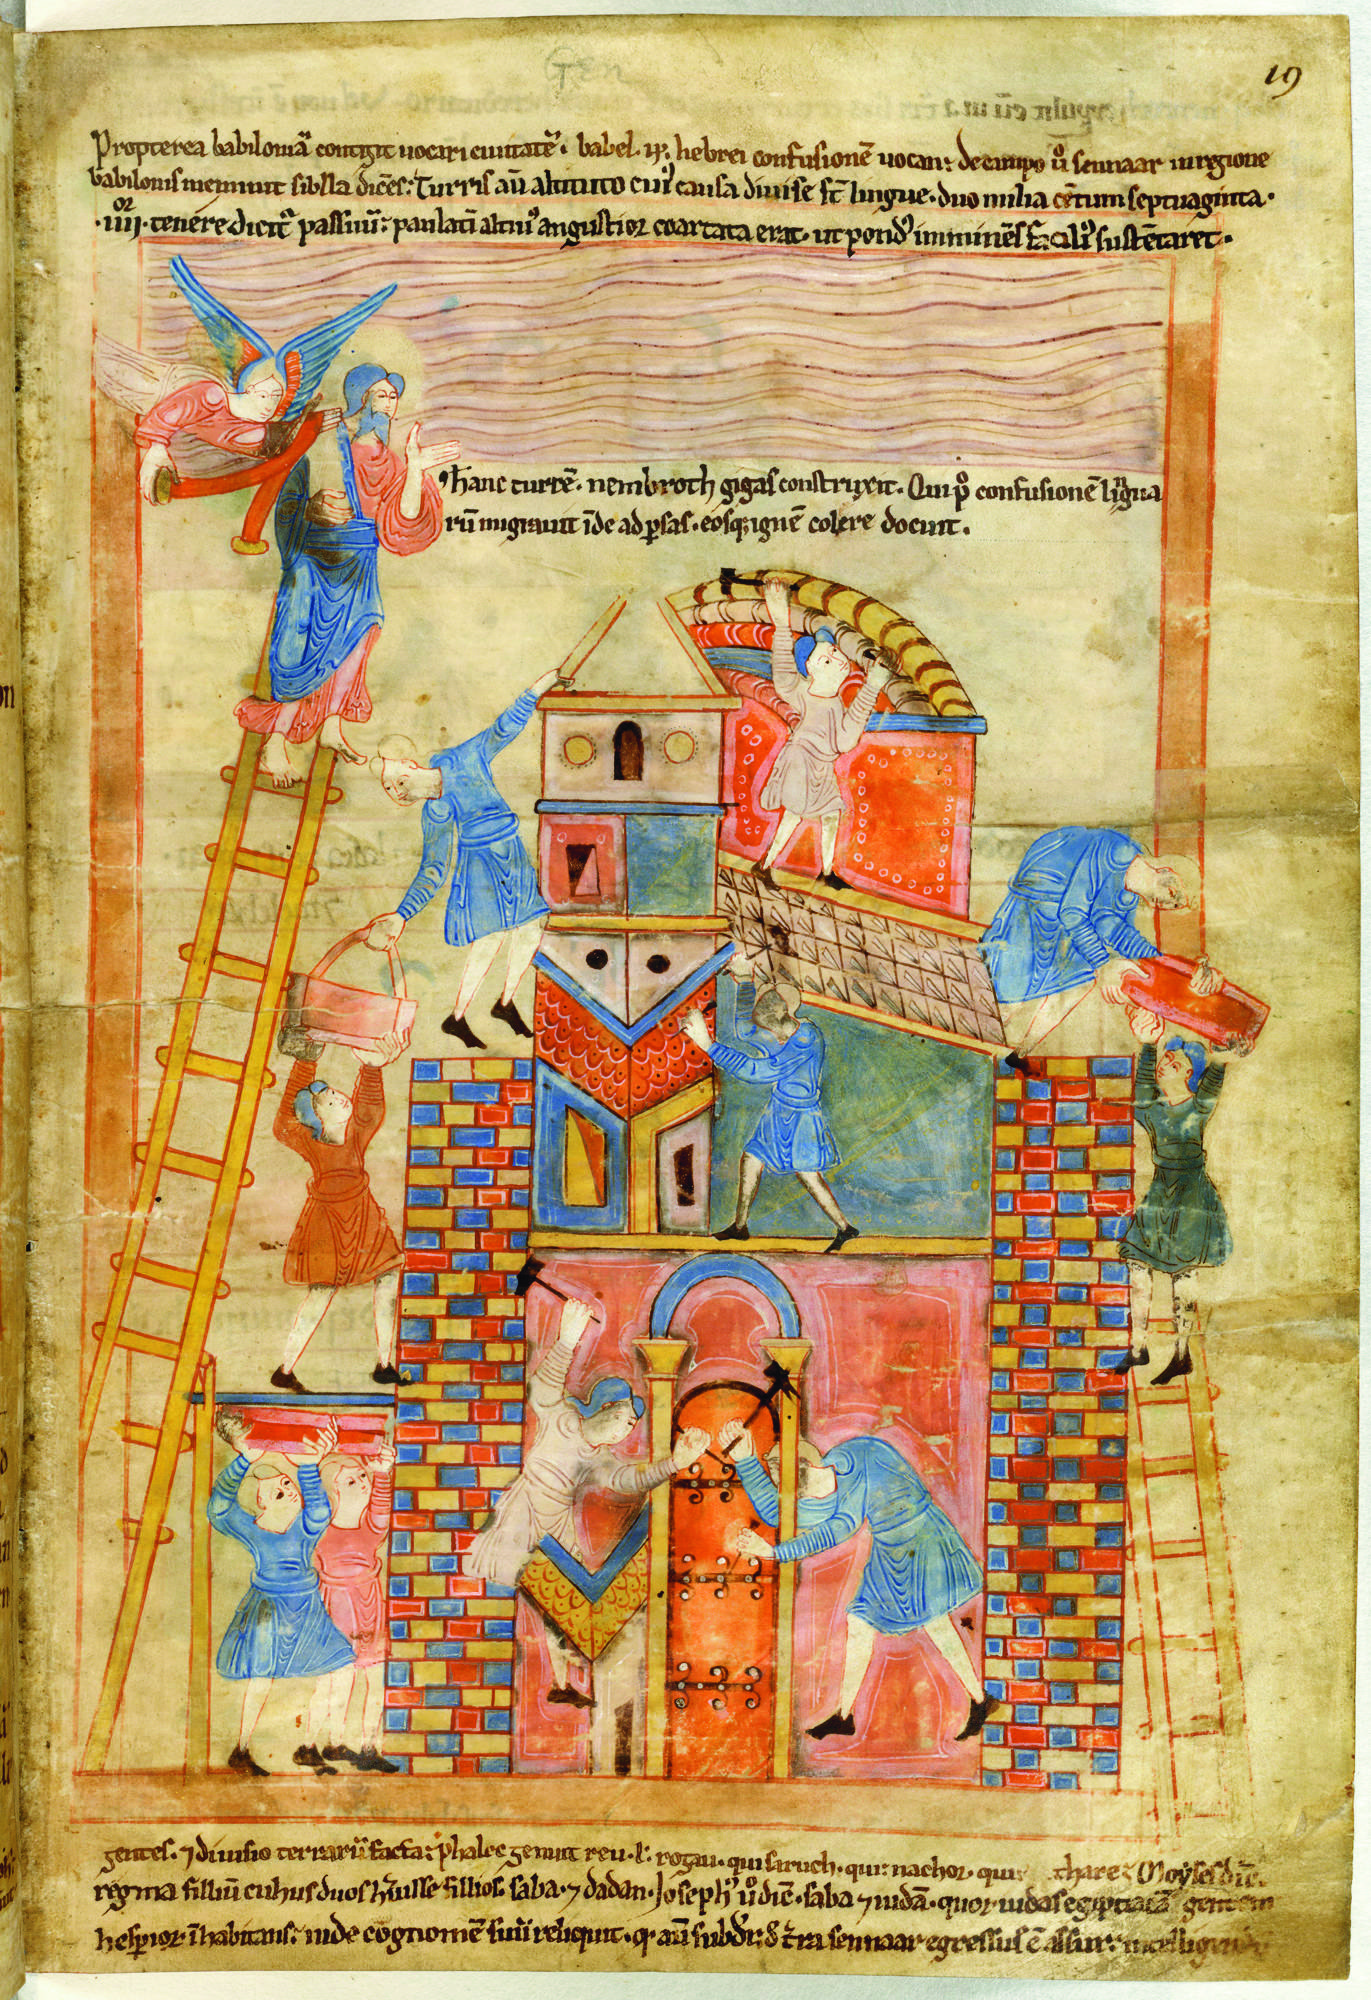 Gen
19
Propterea babiloniā contigit uocari ciuitatē. babel .n. hebrei confusionē uocant: de campo uͦ sennaar in regione
babilonis meminit sibilla dicēs: Turris aū altitudo cuiꝰ causa diuise st̄ lingue. duo milia cētum septuaginta.
.iiiior. tenere dicit᷑ passuū: paulatī altiuꝰ angustior coartata erat. ut pondꝰ imminēs faciliꝰ sustētaret.
hanc turrē. nembroth gigas construxit. Qui pͦ confusionē līgua
rū migrauit īde ad ꝑsas. eosqꝫ ignē colere docuit.
gentes. ⁊ diuisio terrarū facta: phalec genuit reu. ł. rogau. qui saruch. qui: nachor. qui thare: Moyses dīc.
regma filliū cuhus duos hūisse fillios. saba. ⁊ dadan. Josephꝰ uͦ dic̄. saba ⁊ iudā. quor iudas egiptiacā gentem
hesꝑior īhabitans: inde cōgnomē suū reliquit. qͣ aū